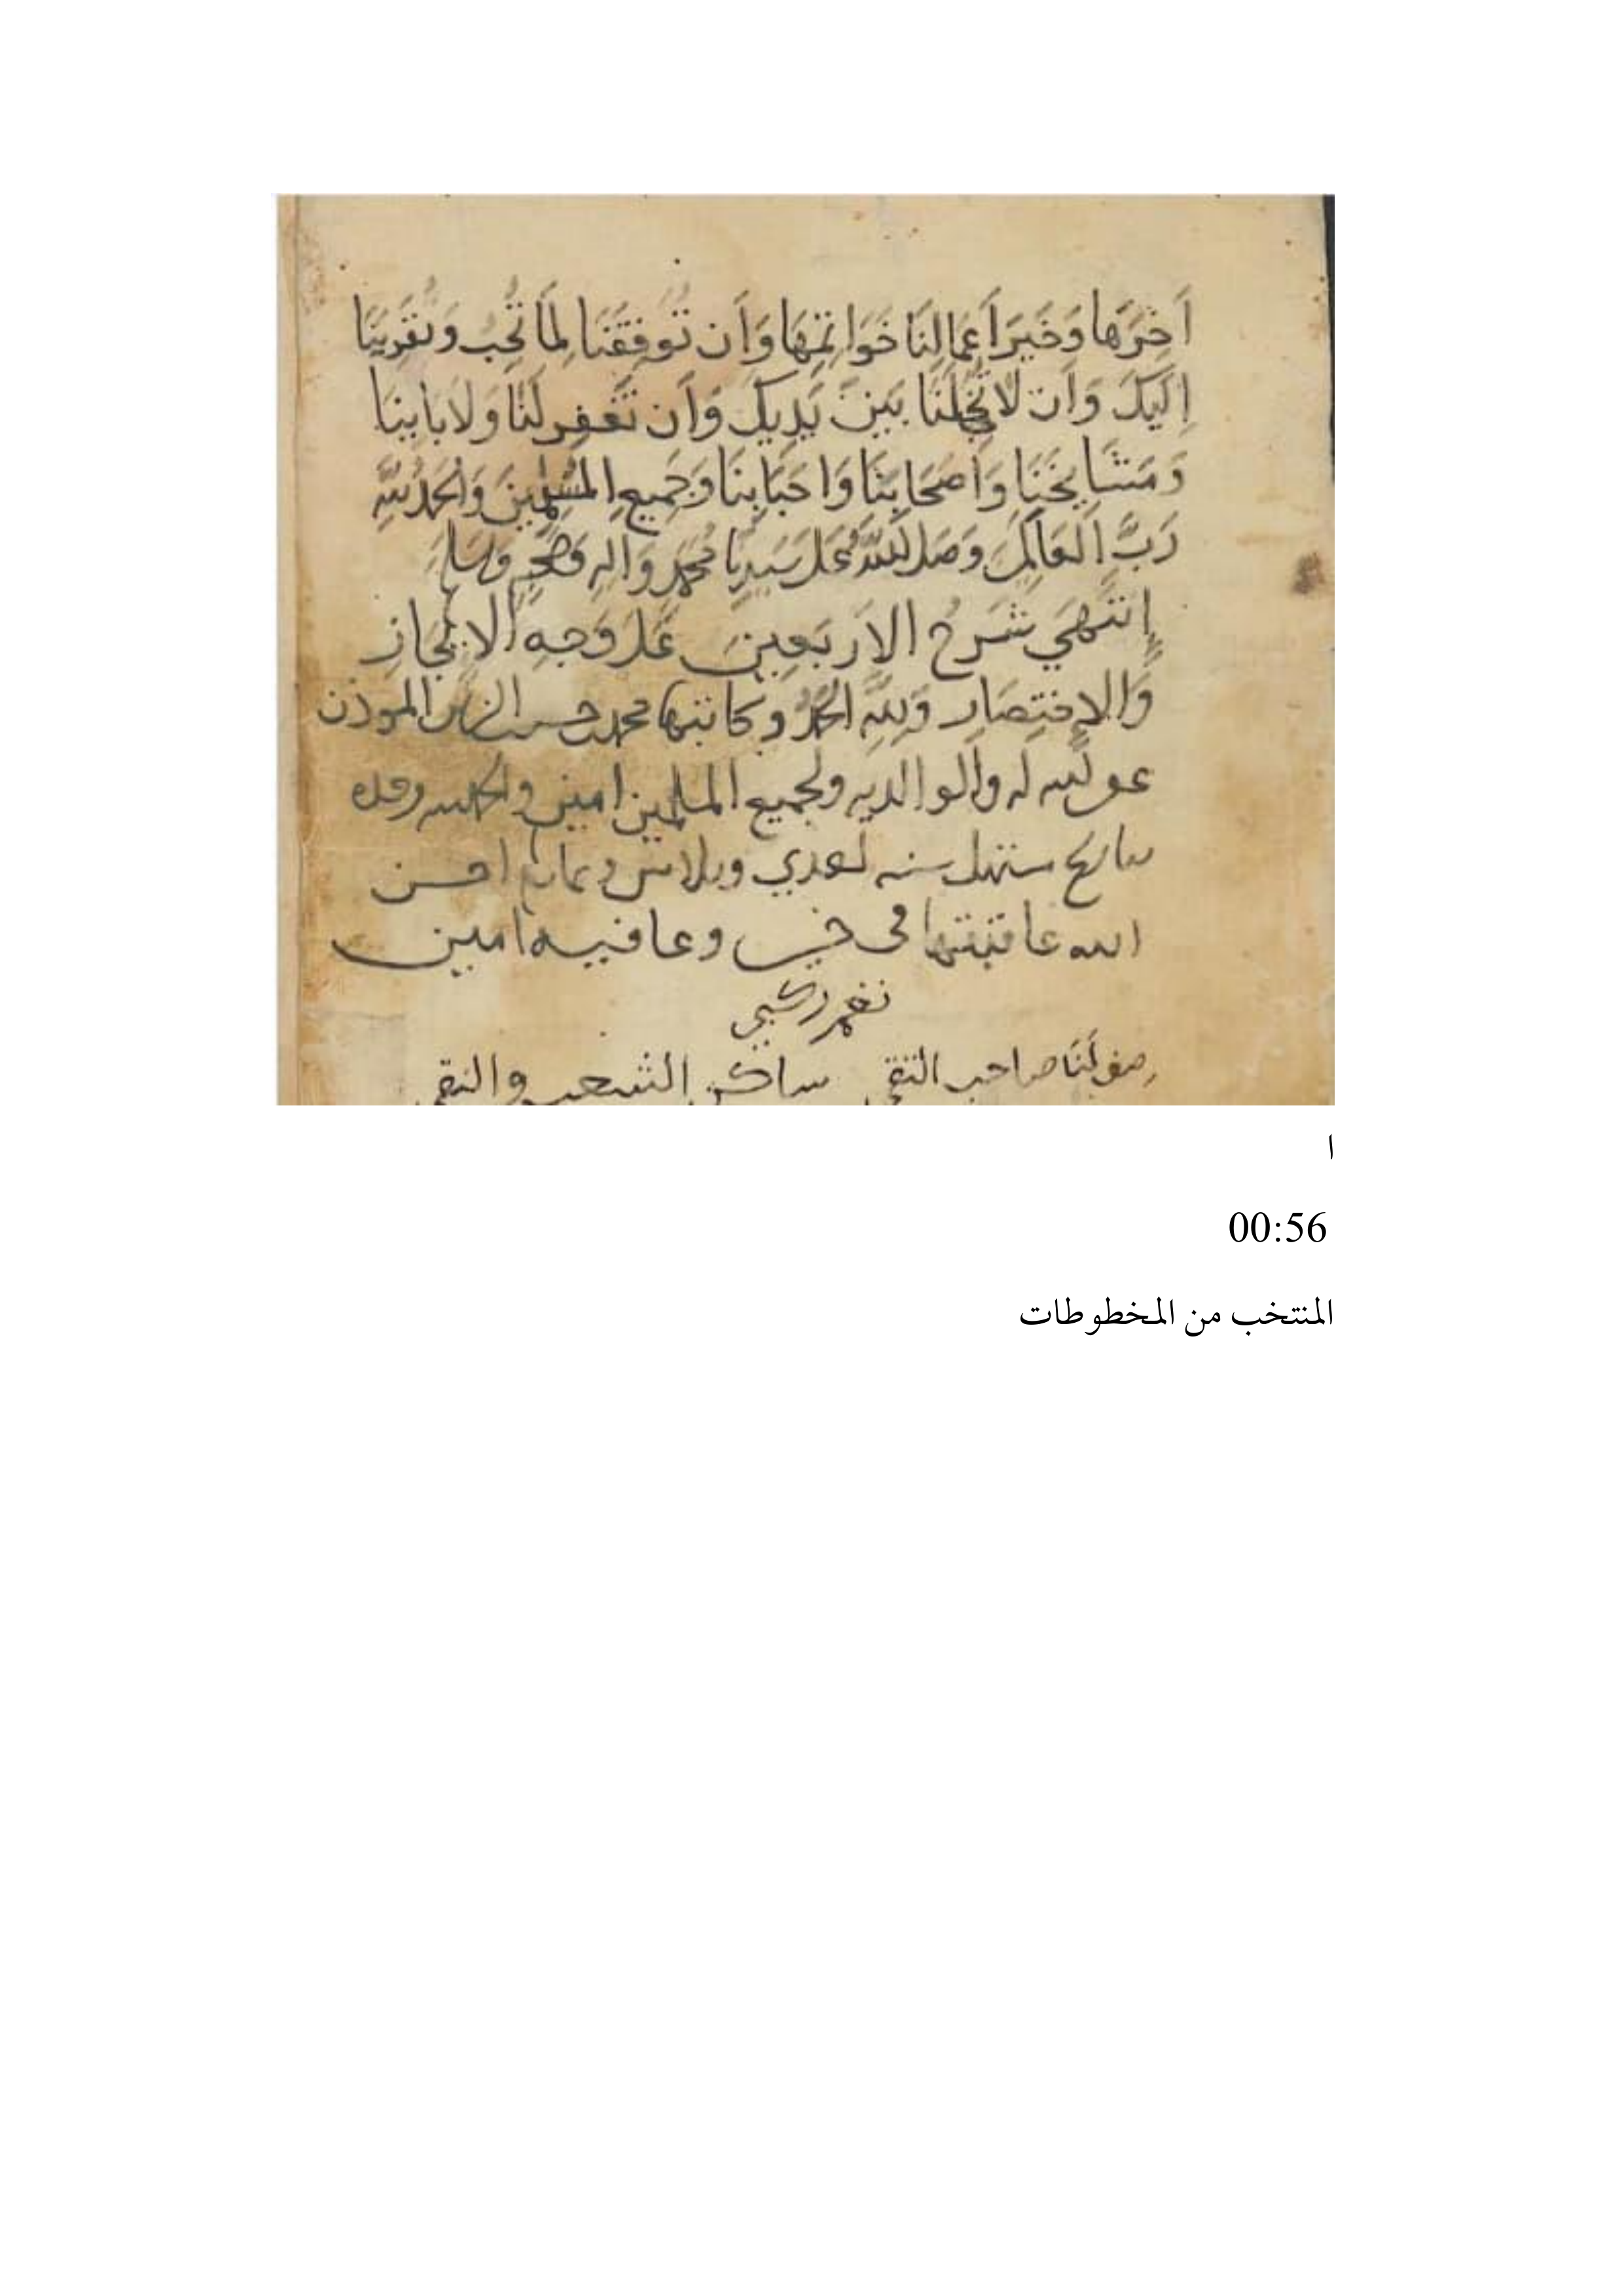 آخِرَهَا وَخَيْرَ أَعْمَالِنَا خَوَاتِمَهَا وَأَن تُوَفِّقَنَا لِمَا تُحِبُّ وَتُقَرِّبَنَا
إِلَيْكَ وَأَن لَا تُخْجِلَنَا بَيْنَ يَدَيْكَ وَأَن تَغْفِر لَنَا وَلِابَايِنَا
وَمَشَايِخَنَا وَأَصْحَابِنَا وَاحْبَابِنَا وَجَمِيعِ الْمُسْلِمِينَ وَالْحَمْدُ لِلَّهِ
رَبِّ الْعَالَمِينَ وَصَلَى اللَّهُ عَلَى سَيِّدِنَا مُحَمَّدٍ وَآلِهِ وَصَحْبِهِ وَسَلَّمَ
إِنْتَهَي شَرْحُ الْأَرْبَعِينَ عَلَى وَجْهِ الْإِيجَازِ
وَالْإِخْتِصَارِ وَلِلَّهِ الْحَمْدُ وكاتبها محمد حسن الموذن
الله له والوالديه ولجميع المسلمين امين والحمد لله وحده
بتاريخ مستهل سنه وثلاثين احسن
الله عاقبتها في خير وعافيه امين
صف لَنَا صاحب النقى ساكن الشعب والنقى
ا
00:56
المنتخب من المخطوطات